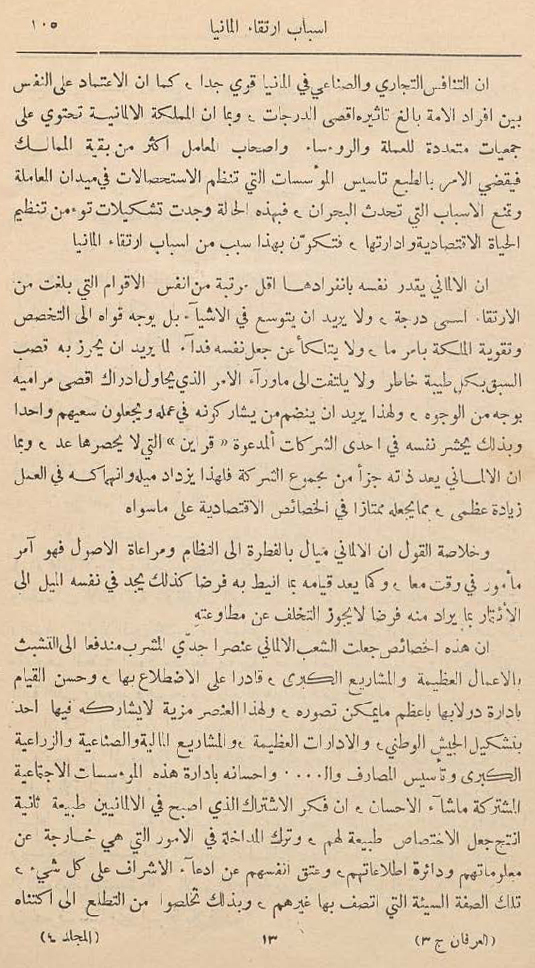 اسباب ارتقاء المانيا ١٠٥
ان التنافس التجاري والصناعي في المانيا قوي جدا ، كما ان الاعتماد على النفس
بين افراد الامة بالغ تاثيره اقصى الدرجات ، وبما ان المملكة الالمانية تحتوي على
جمعيات متعددة للعملة والروءساء واصحاب المعامل اكثر من بقية الممالك
فيقضي الامر بالطبع تاسيس الموءسسات التي تنظم الاستحصالات في ميدان المعاملة
وتمنع الاسباب التي تحدث البحران ، فبهذه الحالة وجدت تشكيلات توءمن تنظيم
الحياة الاقتصادية وادارتها ، فتكوّن بهذا سبب من اسباب ارتقاء المانيا
ان الالماني يقدر نفسه بانفرادها اقل مرتبة من انفس الاقوام التي بلغت من
الارتقاء اسمى درجة ، ولا يريد ان يتوسع في الاشيآء بل يوجه قواه الى التخصص
وتقوية الملكة بامر ما ، ولا يتلكأ عن جعل نفسه فدآء لما يريد ان يحرز به قصب
السبق بكل طيبة خاطر ولا يلتفت الى ماورآء الامر الذي يحاول ادراك اقصى مراميه
بوجه من الوجوه ، ولهذا يريد ان ينضم من يشاركونه في عمله ويجعلون سعيهم واحدا
وبذلك يحشر نفسه في احدى الشركات المدعوة « قراين » التي لا يحصرها عد ، وبما
ان الالماني يعد ذاته جزأ من مجموع الشركة فلهذا يزداد ميله وانهماكه في العمل
زيادة عظمى ، مما يجعله ممتازا في الخصائص الاقتصادية على ماسواه
وخلاصة القول ان الالماني ميال بالفطرة الى النظام ومراعاة الاصول فهو آمر
مأمور في وقت معا ، وكما يعد قيامه بما انيط به فرضا كذلك يجد في نفسه الميل الى
الأئتمار بما يراد منه فرضا لايجوز التخلف عن مطاوعته
ان هذه الخصائص جعلت الشعب الالماني عنصرا جدّي المشرب مندفعا الى التشبث
بالاعمال العظيمة والمشاريع الكبرى ، قادرا على الاضطلاع بها ، وحسن القيام
بادارة دولابها باعظم مايمكن تصوره ، ولهذا العنصر مزية لايشاركه فيها احد
بتشكيل الجيش الوطني ، والادارات العظيمة ، والمشاريع المالية والصناعية والزراعية
الكبرى وتأسيس المصارف وال.... واحسانه بادارة هذه الموءسسات الاجتماعية
المشتركة ماشآء الاحسان ، ان فكر الاشتراك الذي اصبح في الالمانيين طبيعة ثانية
انتج جعل الاختصاص طبيعة لهم ، وترك المداخلة في الامور التي هي خارجة عن
معلوماتهم ودائرة اطلاعاتهم ، وعتق انفسهم عن ادعآء الاشراف على كل شيء ،
تلك الصفة السيئة التي اتصف بها غيرهم ، وبذلك تخلصوا من التطلع الى اكتناه
(العرفان ج ٣) ١٣ (المجلد ٤)